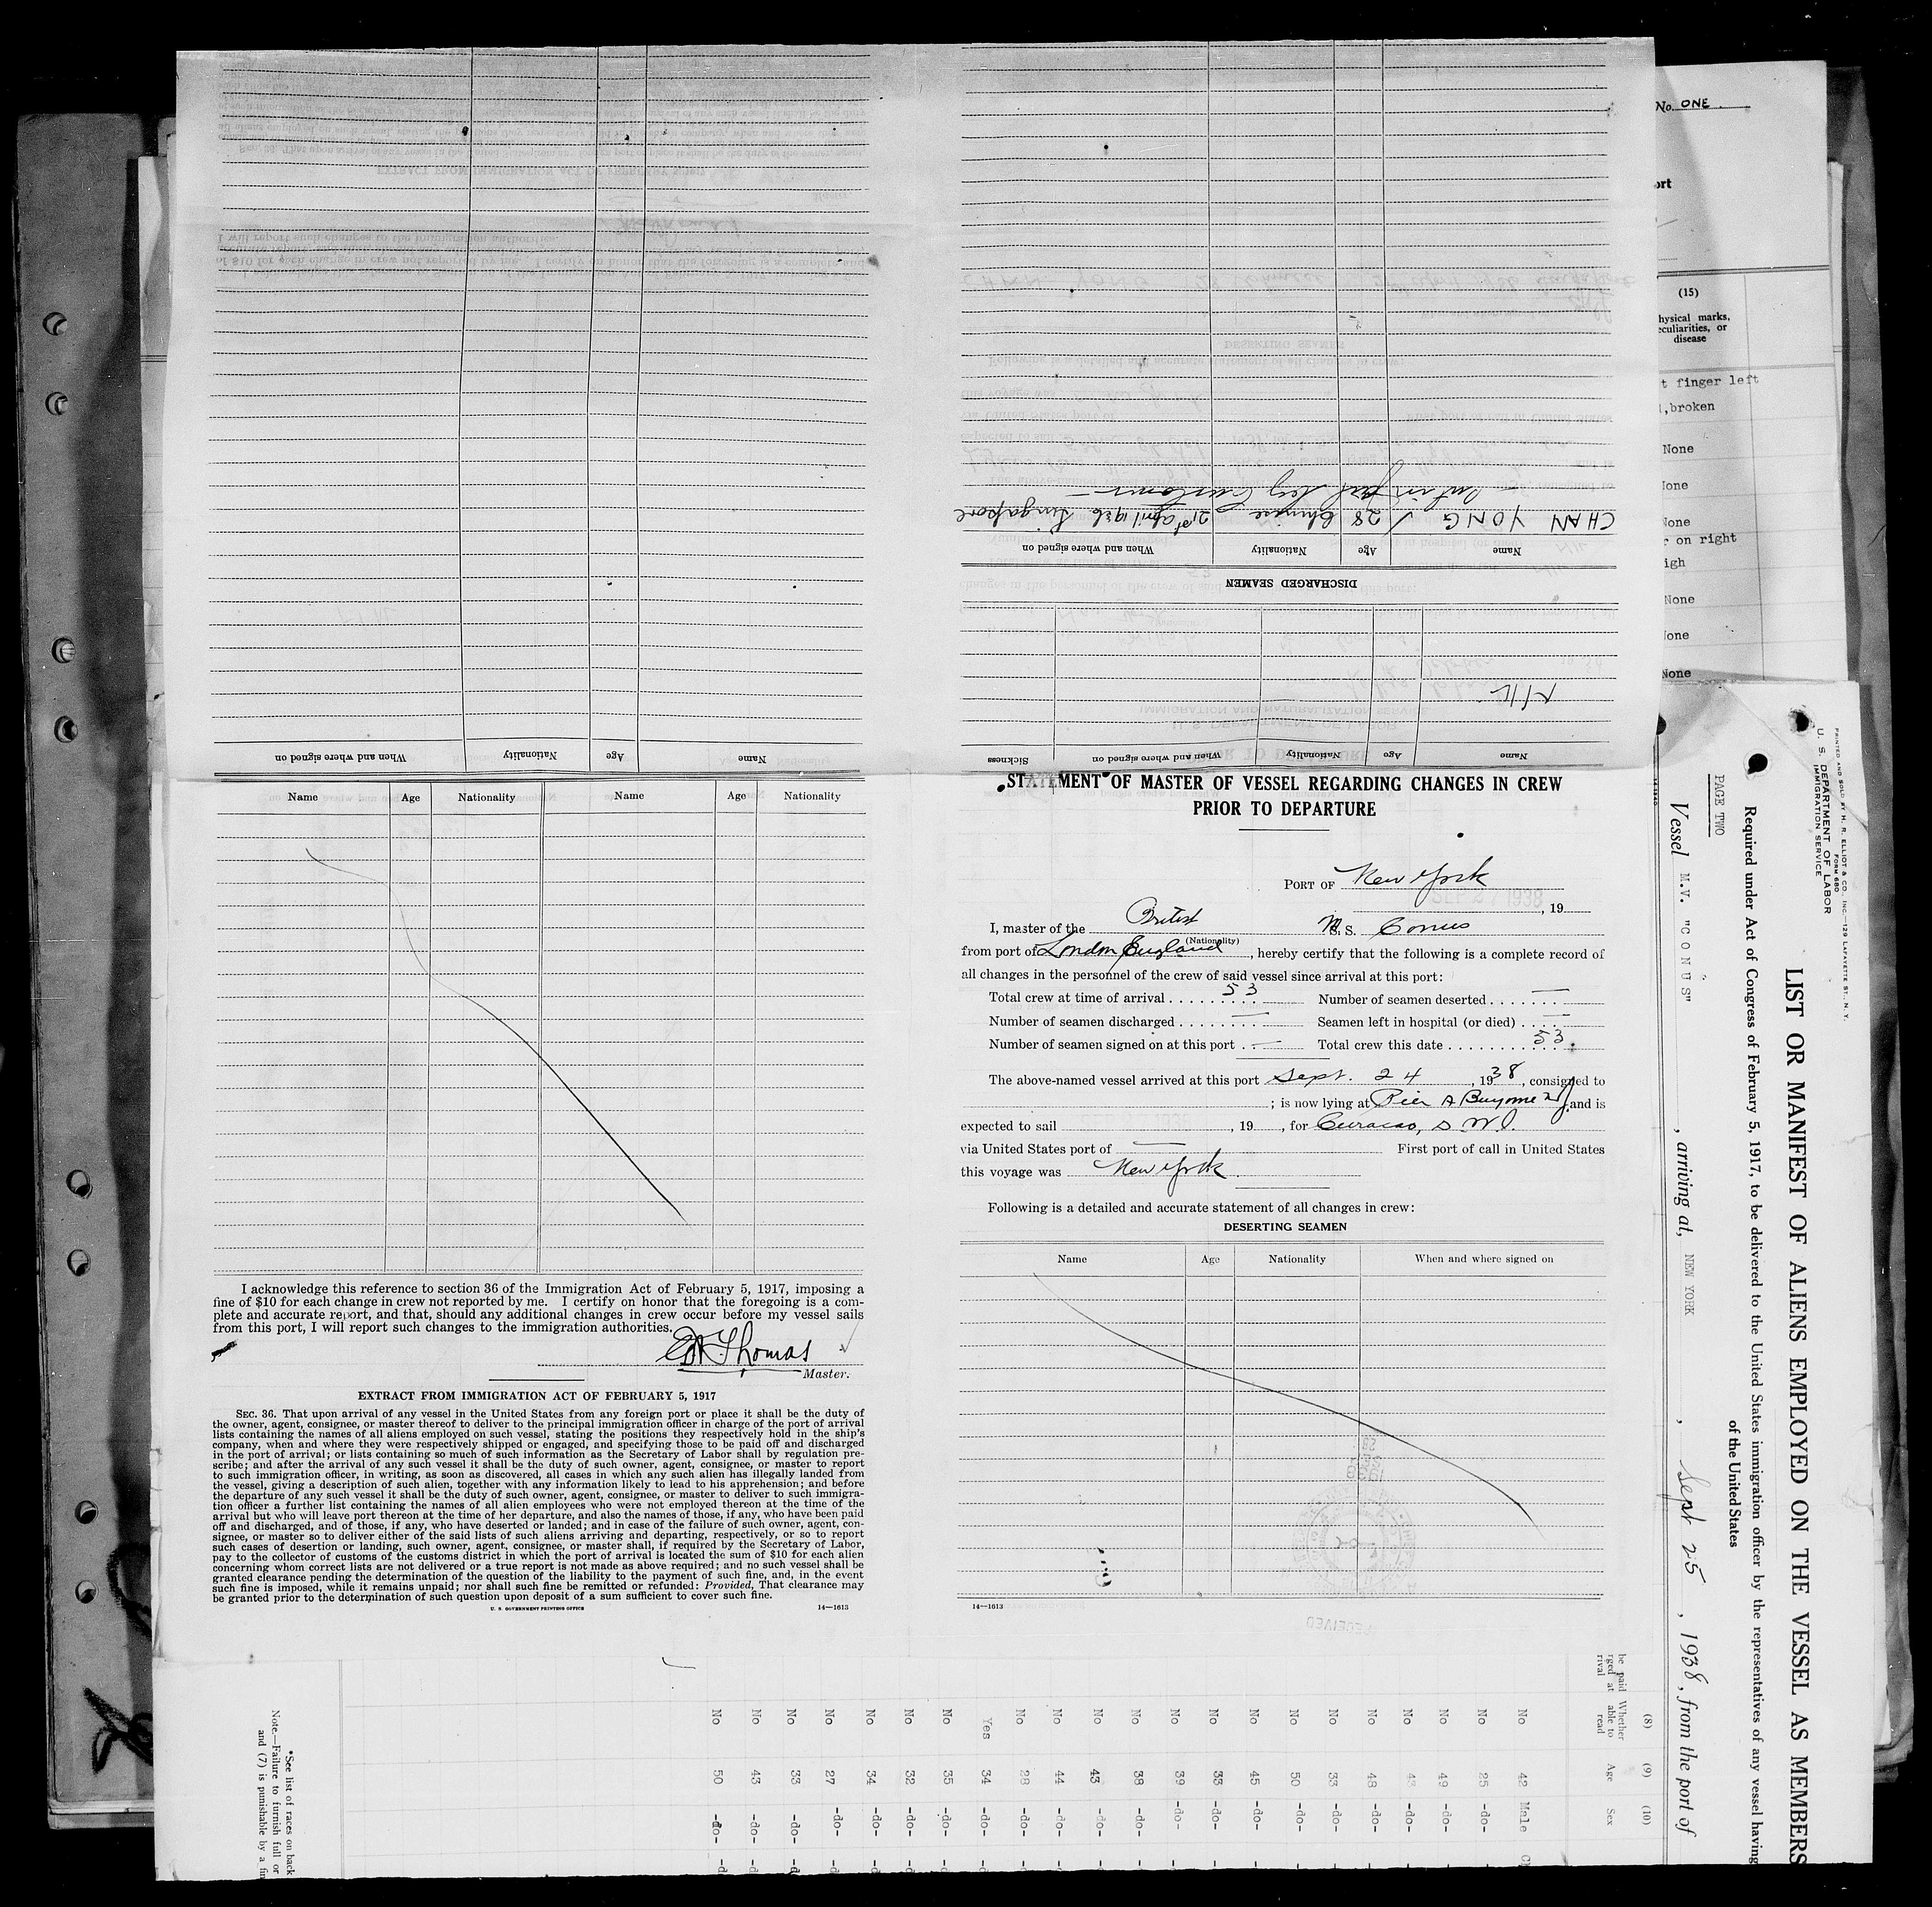 No. ONE
ort
(15)
hysical marks,
eculiarities, or
disease
t finger left
,broken
None
None
None
r on right
igh
None
None
None
CHAN YONG 28 Chinese 21st April 1936 Singapore
Name Age Nationality When and where signed on
DISCHARGED SEAMEN
Nil
Name Age Nationality When and where signed on Sickness
Name Age Nationality When and where signed on
Name Age Nationality Name Age Nationality
I acknowledge this reference to section 36 of the Immigration Act of February 5, 1917, imposing a
fine of $10 for each change in crew not reported by me. I certify on honor that the foregoing is a com-
plete and accurate report, and that, should any additional changes in crew occur before my vessel sails
from this port, I will report such changes to the immigration authorities.
Thomas
Master.
EXTRACT FROM IMMIGRATION ACT OF FEBRUARY 5, 1917
SEC. 36. That upon arrival of any vessel in the United States from any foreign port or place it shall be the duty of
the owner, agent, consignee, or master thereof to deliver to the principal immigration officer in charge of the port of arrival
lists containing the names of all aliens employed on such vessel, stating the positions they respectively hold in the ship's
company, when and where they were respectively shipped or engaged, and specifying those to be paid off and discharged
in the port of arrival; or lists containing so much of such information as the Secretary of Labor shall by regulation pre-
scribe; and after the arrival of any such vessel it shall be the duty of such owner, agent, consignee, or master to report
to such immigration officer, in writing, as soon as discovered, all cases in which any such alien has illegally landed from
the vessel, giving a description of such alien, together with any information likely to lead to his apprehension; and before
the departure of any such vessel it shall be the duty of such owner, agent, consignee, or master to deliver to such immigra-
tion officer a further list containing the names of all alien employees who were not employed thereon at the time of the
arrival but who will leave port thereon at the time of her departure, and also the names of those, if any, who have been paid
off and discharged, and of those, if any, who have deserted or landed; and in case of the failure of such owner, agent, con-
signee, or master so to deliver either of the said lists of such aliens arriving and departing, respectively, or so to report
such cases of desertion or landing, such owner, agent, consignee, or master shall, if required by the Secretary of Labor,
pay to the collector of customs of the customs district in which the port of arrival is located the sum of $10 for each alien
concerning whom correct lists are not delivered or a true report is not made as above required; and no such vessel shall be
granted clearance pending the determination of the question of the liability to the payment of such fine, and, in the event
such fine is imposed, while it remains unpaid; nor shall such fine be remitted or refunded: Provided, That clearance may
be granted prior to the determination of such question upon deposit of a sum sufficient to cover such fine.
U. S. GOVERNMENT PRINTING OFFICE 14—1613
STATEMENT OF MASTER OF VESSEL REGARDING CHANGES IN CREW
PRIOR TO DEPARTURE
PORT OF New York
SEP 27 1938, 19
I, master of the British M. S. Conus
(Nationality)
from port of London England, hereby certify that the following is a complete record of
all changes in the personnel of the crew of said vessel since arrival at this port:
Total crew at time of arrival 53 Number of seamen deserted —
Number of seamen discharged — Seamen left in hospital (or died) —
Number of seamen signed on at this port — Total crew this date 53
The above-named vessel arrived at this port Sept. 24, 1938, consigned to
; is now lying at Pier A Bayonne, and is
expected to sail , 19 , for Curacao, D. W. I.
via United States port of — First port of call in United States
this voyage was New York.
Following is a detailed and accurate statement of all changes in crew:
DESERTING SEAMEN
Name Age Nationality When and where signed on
14—1613
RECEIVED
PRINTED AND SOLD BY H. R. ELLIOT & CO., INC.—129 LAFAYETTE ST., N. Y.
FORM 680
U. S. DEPARTMENT OF LABOR
IMMIGRATION SERVICE
LIST OR MANIFEST OF ALIENS EMPLOYED ON THE VESSEL AS MEMBERS
Required under Act of Congress of February 5, 1917, to be delivered to the United States immigration officer by the representatives of any vessel having
of the United States
PAGE TWO
Vessel M.V. "CONUS" , arriving at, NEW YORK , Sept 25 , 1938, from the port of
be paid
rged at
rival
(8)
Whether
able to
read
(9)
Age
(10)
Sex
No 42 Male
No 25 -do-
No 49 -do-
No 43 -do-
No 48 -do-
No 33 -do-
No 50 -do-
No 45 -do-
No 33 -do-
No 39 -do-
No 38 -do-
No 43 -do-
No 44 -do-
No 28 -do-
Yes 34 -do-
No 35 -do-
No 32 -do-
No 34 -do-
No 27 -do-
No 33 -do-
No 43 -do-
No 50 -do-
*See list of races on back
Note.—Failure to furnish full or
and (7) is punishable by a fi